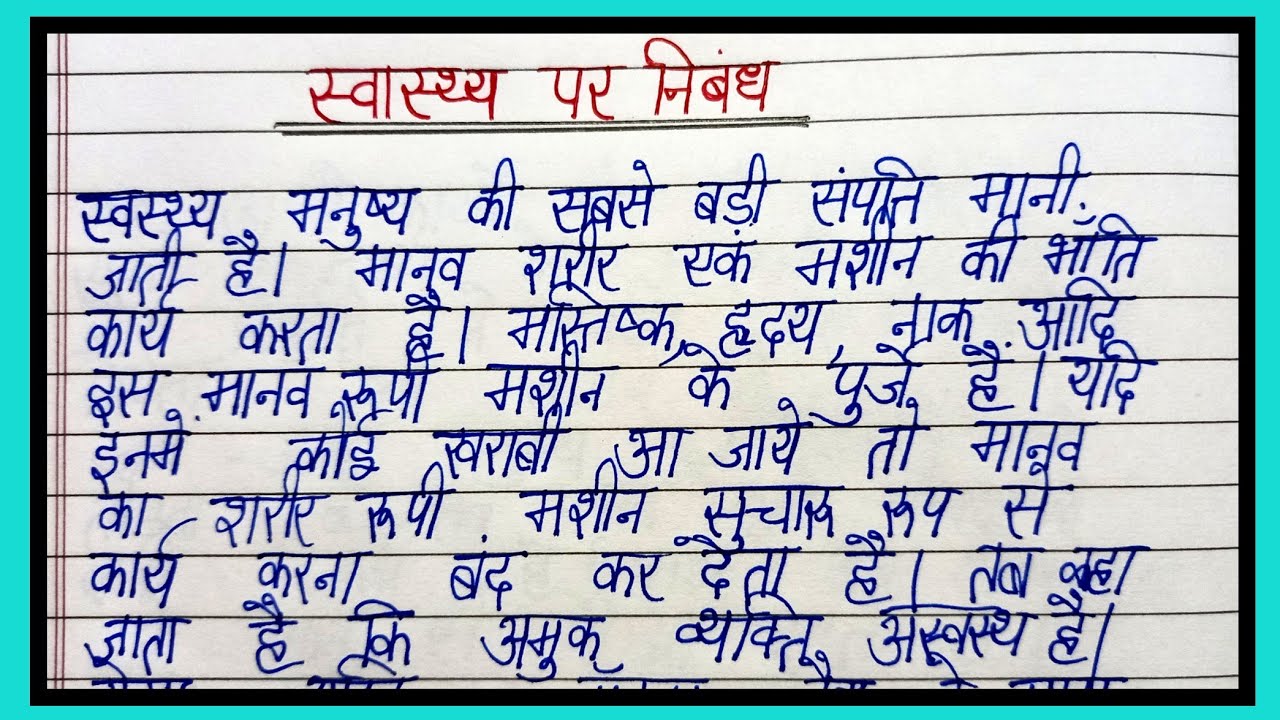 स्वास्थ्य पर निबंध
स्वस्थ्य मनुष्य की सबसे बड़ी संपत्ति मानी
जाती है। मानव शरीर एक मशीन की भाँति
कार्य करता है। मस्तिष्क, हृदय, नाक आदि
इस मानव रूपी मशीन के पुर्जे है। यदि
इनमे कोई खराबी आ जाये तो मानव
का शरीर रूपी मशीन सुचारू रूप से
कार्य करना बंद कर देता है। तब कहा
जाता है कि अमुक व्यक्ति अस्वस्थ है।